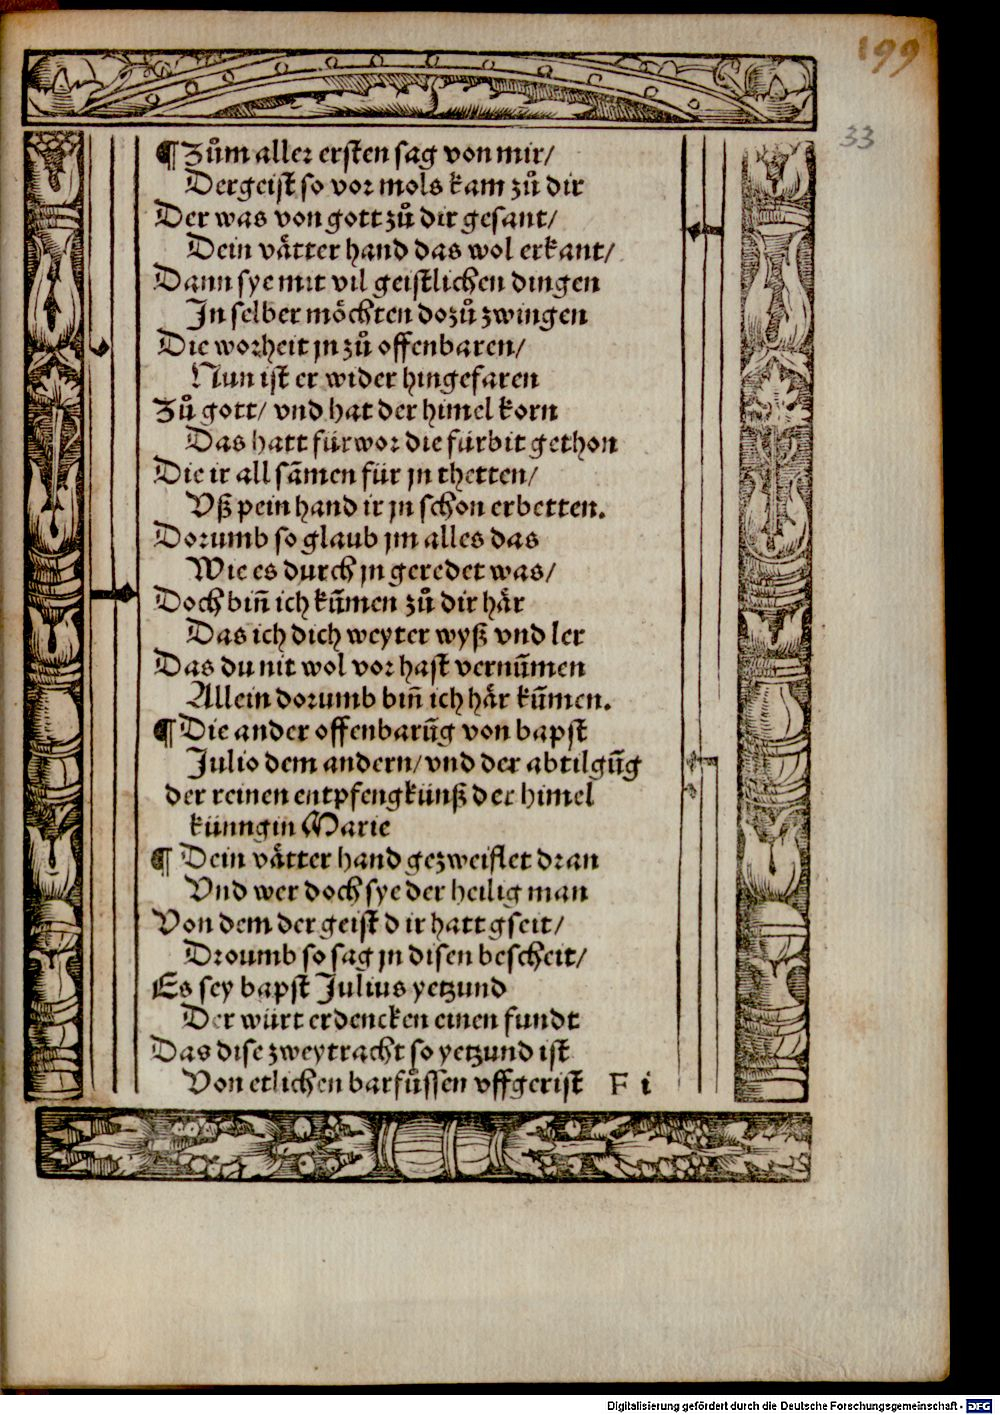 199
33
¶ Zům aller ersten sag von mir/
Dergeist so vor mols kam zů dir
Der was von gott zů dir gesant/
Dein vätter hand das wol erkant/
Dann sye mit vil geistlichen dingen
In selber möchten dozů zwingen
Die worheit jn zů offenbaren/
Nun ist er wider hingefaren
Zů gott/ vnd hat der himel korn
Das hatt fürwor die fürbit gethon
Die ir all sãmen für jn thetten/
Vß pein hand ir jn schon erbetten.
Dorumb so glaub jm alles das
Wie es durch jn geredet was/
Doch biñ ich kũmen zů dir här
Das ich dich weyter wyß vnd ler
Das du nit wol vor hast vernũmen
Allein dorumb biñ ich här kũmen.
¶ Die ander offenbarũg von bapst
Julio dem andern/ vnd der abtilgũg
der reinen entpfengkünß der himel
künngin Marie
¶ Dein vätter hand gezweiflet dran
Vnd wer doch sye der heilig man
Von dem der geist dir hatt gseit/
Droumb so sag jn disen bescheit/
Es sey bapst Julius yetzund
Der würt erdencken einen fundt
Das dise zweytracht so yetzund ist
Von etlichen barfůssen vffgerist F i
Digitalisierung gefördert durch die Deutsche Forschungsgemeinschaft - DFG